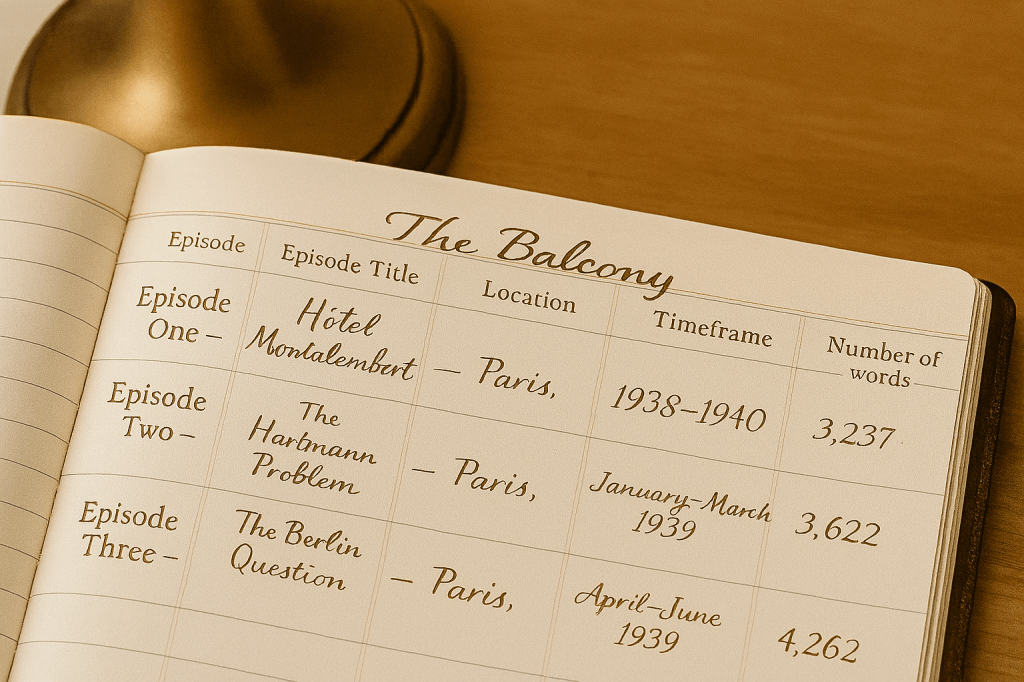 The Balcony
Episode Episode Title Location Timeframe Number of
words
Episode
One –
Hôtel
Montalembert
– Paris,
1938–1940
3,237
Episode
Two –
The
Hartmann
Problem
– Paris,
January–March
1939
3,622
Episode
Three –
The Berlin
Question
– Paris,
April–June
1939
4,262